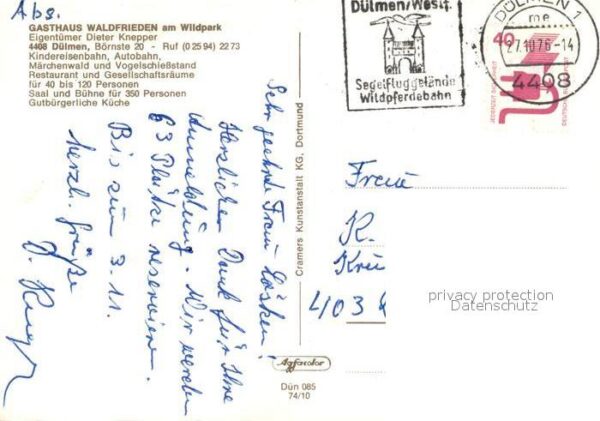 Abs.
GASTHAUS WALDFRIEDEN am Wildpark
Eigentümer Dieter Knepper
4408 Dülmen, Börnste 20 - Ruf (0 25 94) 22 73
Kindereisenbahn, Autobahn,
Märchenwald und Vogelschießstand
Restaurant und Gesellschaftsräume
für 40 bis 120 Personen
Saal und Bühne für 350 Personen
Gutbürgerliche Küche
Sehr geehrte Frau
Herzlichen Dank für Ihre
Anmeldung. Wir werden
63 Plätze reservieren.
Bis zum 3.11.
herzl. Grüße
D.
Cramers Kunstanstalt KG, Dortmund
Agfacolor
Dün 085
74/10
Dülmen/Westf.
Segelfluggelände
Wildpferdebahn
DÜLMEN 1
me
27.10.76-14
4408
40
JEDERZEIT SICHERHEIT
DEUTSCHE BUNDESPOST
Frau
K.
403
privacy protection
Datenschutz